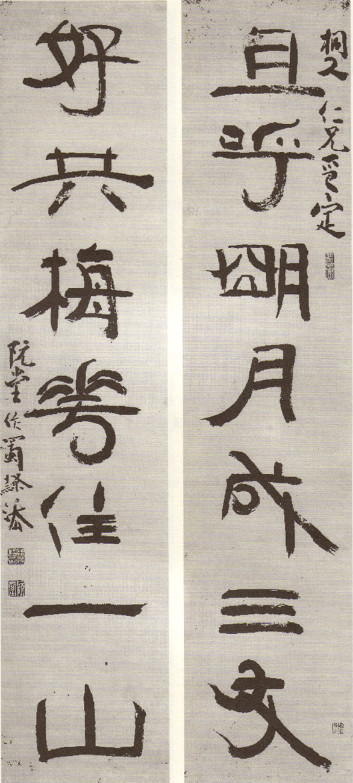 且呼朙月成三友
仁兄定
好共梅花住一山
阮堂作蜀隸法